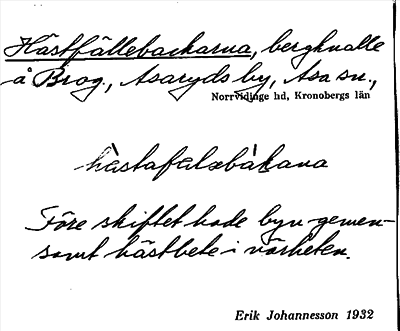 Hästfällebackarna, bergknalle
å Brog, Asaryds by, Asa sn.,
Norrvidinge hd, Kronobergs län
hästafälebàkana
Före skiftet hade byn gemen-
samt hästbete i närheten.
Erik Johannesson 1932